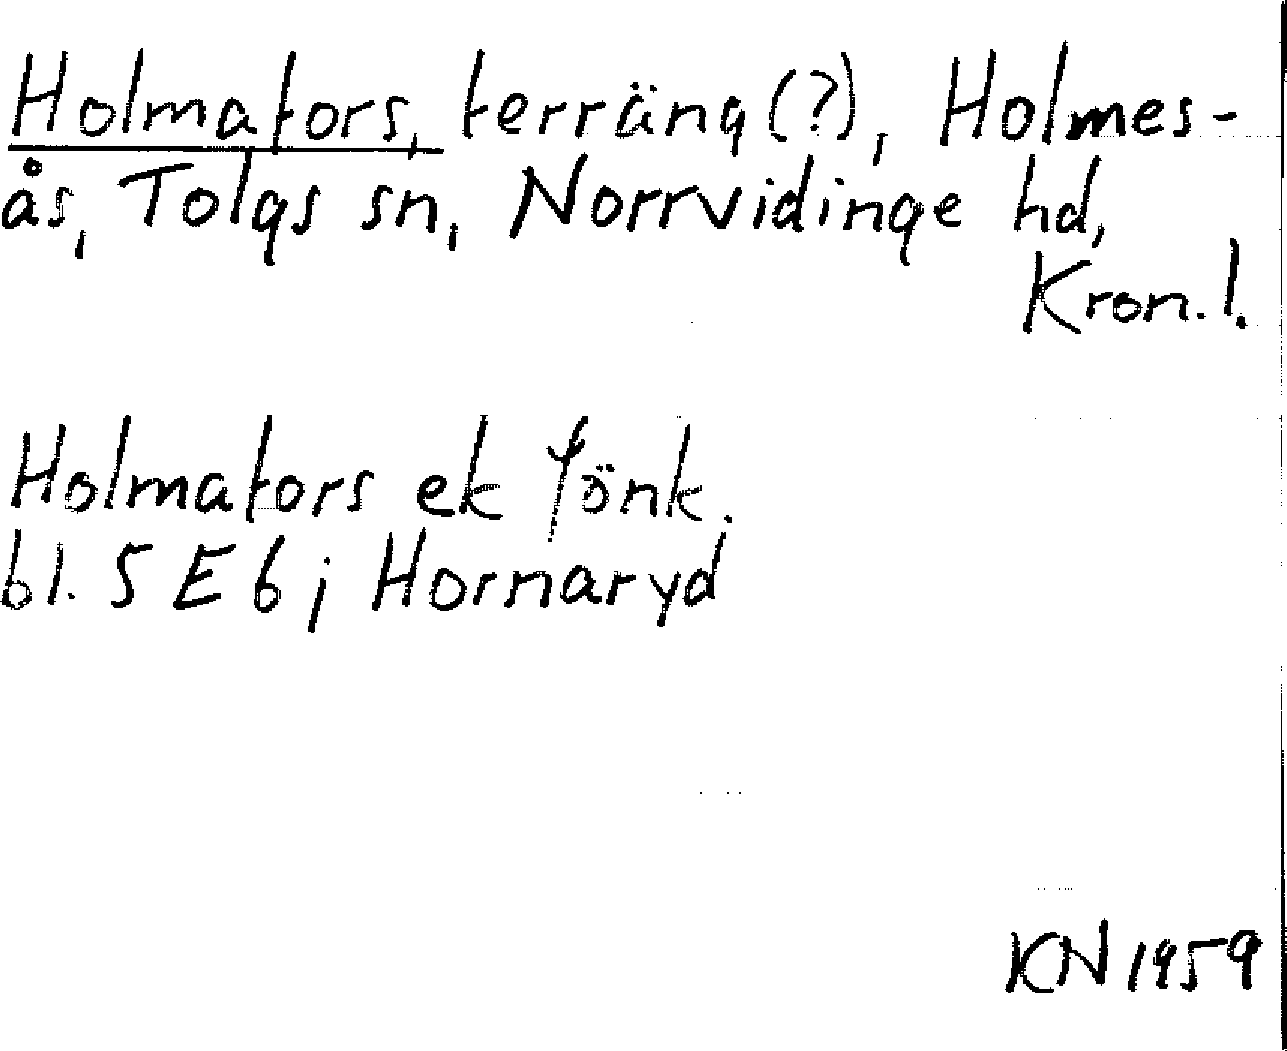 Holmators, terräng (?), Holmes-
ås, Tolgs sn, Norrvidinge hd,
Kron. l.
Holmators ek fönk.
bl. 5 E 6 j Hornaryd
KN 1959